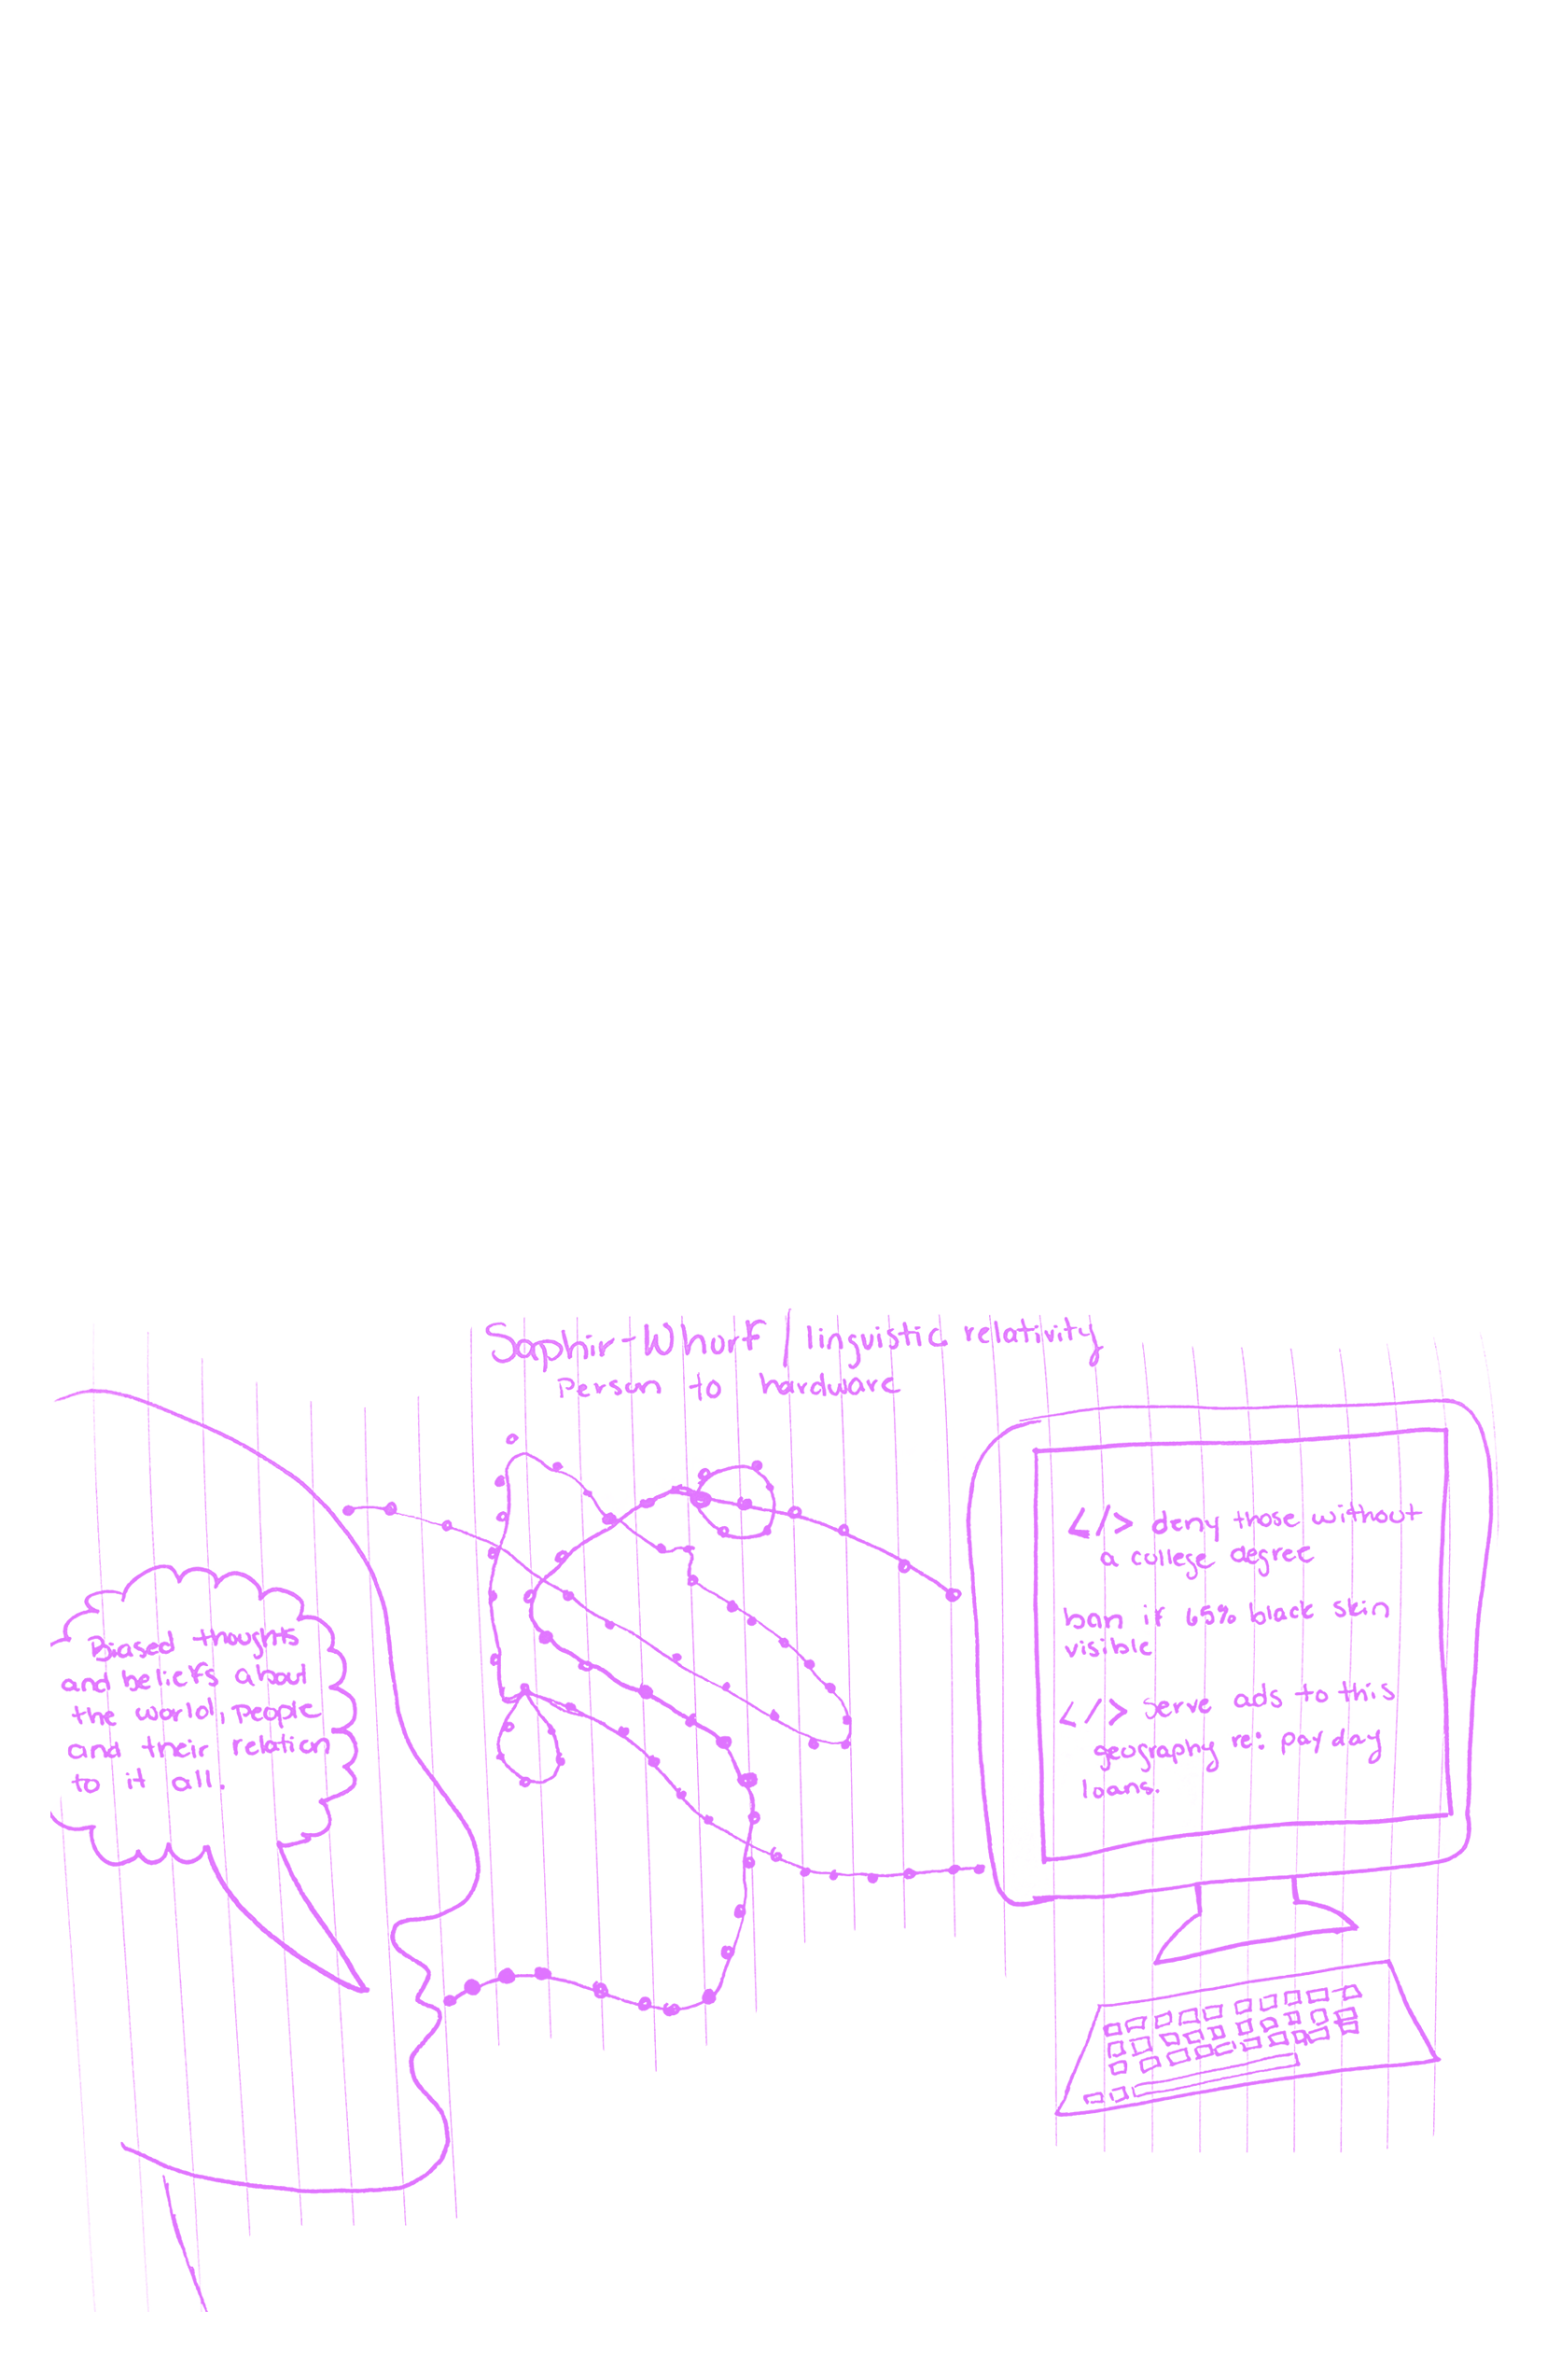 Saphir-Whorf / linguistic relativity
Person to hardware
Biased thoughts
and beliefs about
the world, people
and their relation
to it all.
</> deny those without
a college degree
ban if 65% black skin
visible
</> serve ads to this
geography re: payday
loans.